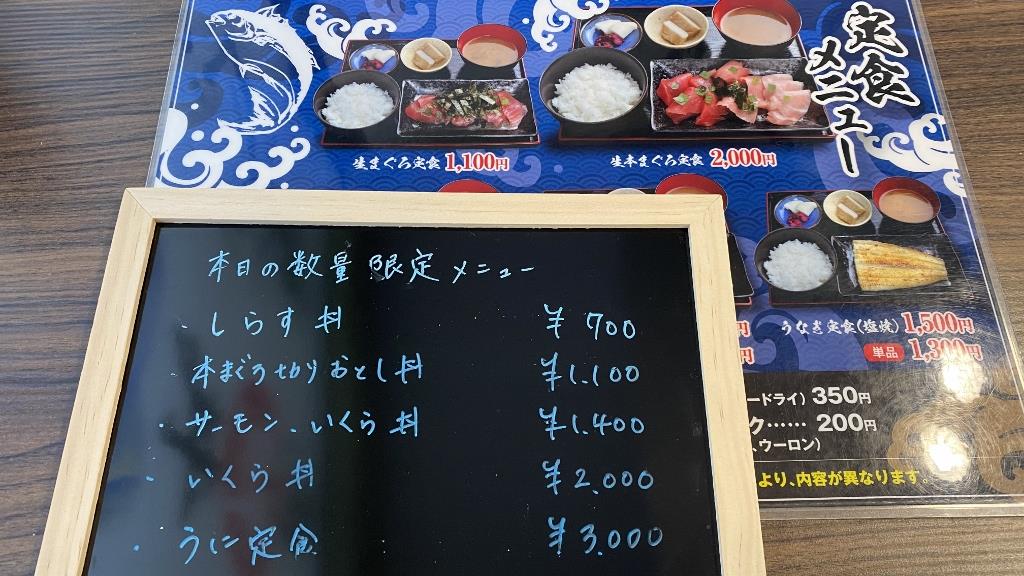 定食
メニュー
生まぐろ定食 1,100円
生本まぐろ定食 2,000円
うなぎ定食(塩焼) 1,500円
単品 1,300円
ードライ) 350円
ク…… 200円
、ウーロン)
より、内容が異なります。
本日の数量限定メニュー
・しらす丼 ¥700
本まぐろ切りおとし丼 ¥1.100
・サーモン、いくら丼 ¥1.400
・いくら丼 ¥2.000
・うに定食 ¥3.000